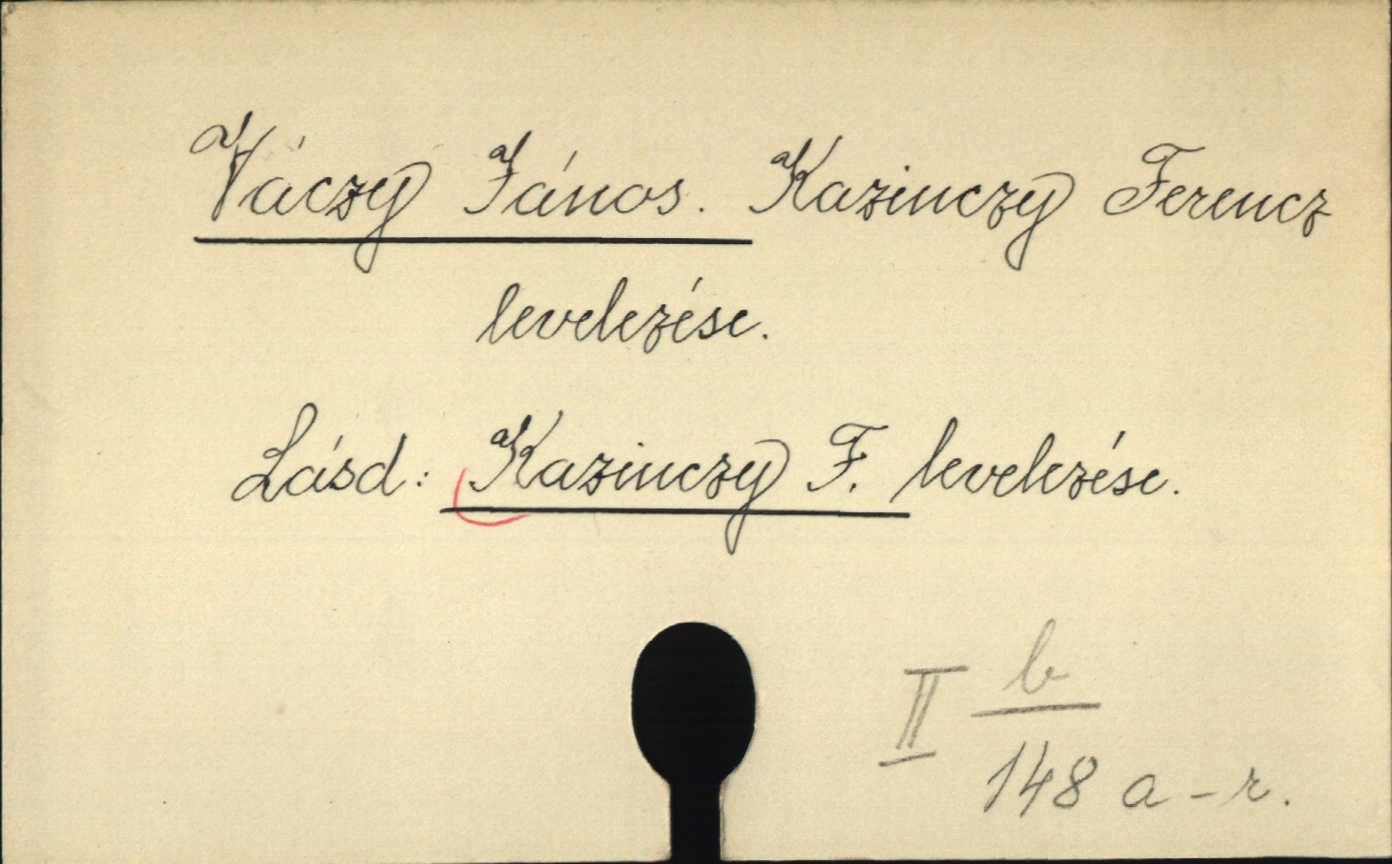 Váczy János. Kazinczy Ferencz
levelezése.
Lásd: Kazinczy F. levelezése.
II b
148 a-r.